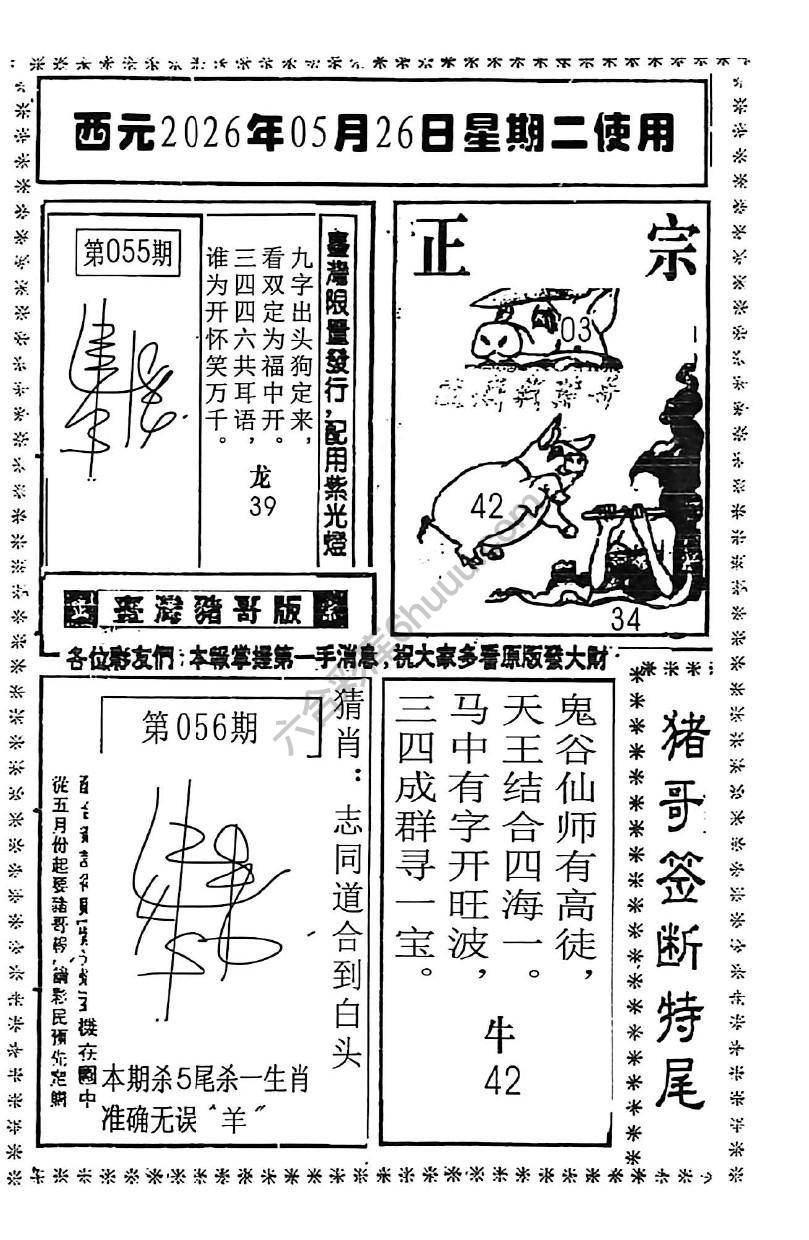 西元2026年05月26日星期二使用
第055期
九字出头狗定来，
看双定为福中开。
三四四六共耳语，
谁为开怀笑万千。
龙
39
臺灣限量發行，配用紫光燈
正宗
03
42
34
臺灣豬哥版
各位彩友們：本報掌握第一手消息，祝大家多看原版發大財
六合彩库6huuu.com
第056期
猜肖：志同道合到白头
從五月份起要豬哥報
本期杀5尾杀一生肖
准确无误“羊”
鬼谷仙师有高徒，
天王结合四海一。
马中有字开旺波，
三四成群寻一宝。
牛
42
猪哥签断特尾